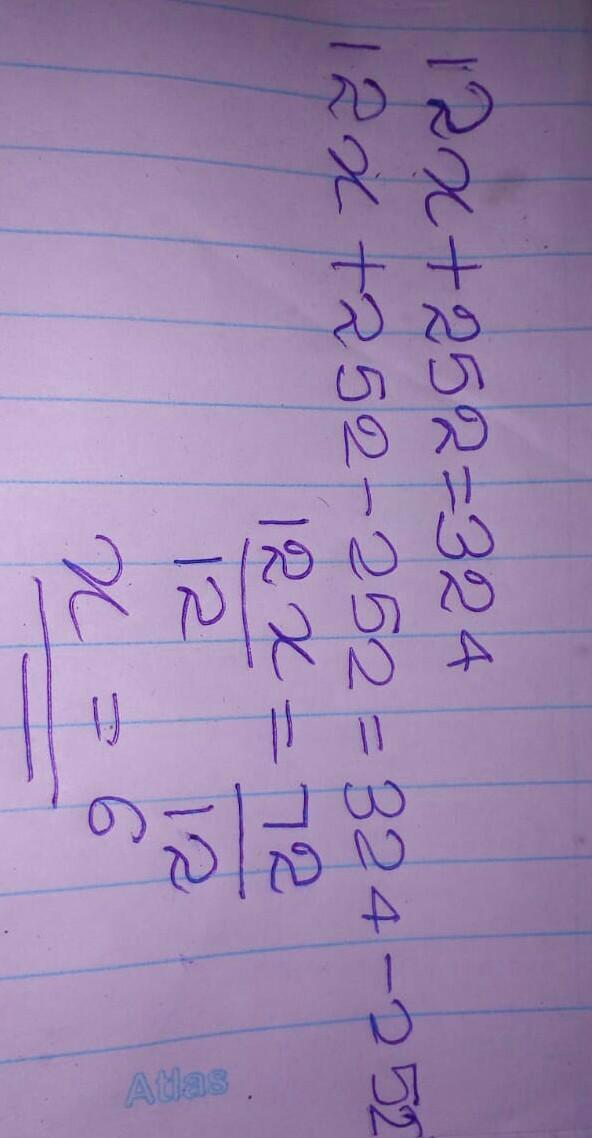 12x+252=324
12x+252-252=324-252
12x/12=72/12
x=6
Atlas